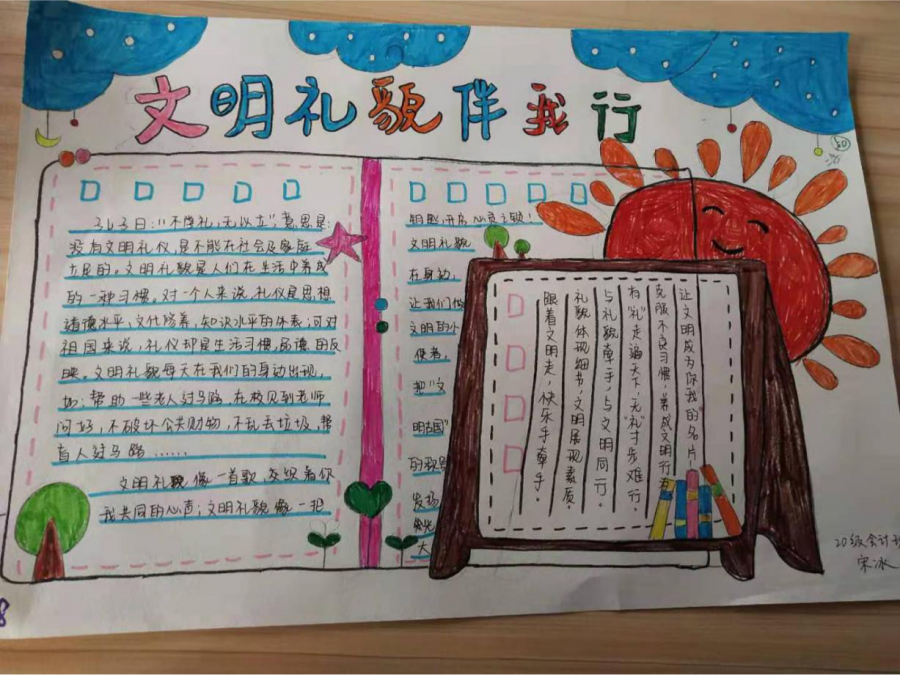 文明礼貌伴我行
孔子曰：“不学礼，无以立”意思是：
没有文明礼仪，是不能在社会及家庭
立足的。文明礼貌是人们在生活中养成
的一种习惯。对一个人来说，礼仪是思想
道德水平、文化修养，知识水平的体表；可对
祖国来说，礼仪却是生活习惯，品德的反
映。文明礼貌每天在我们的身边出现，
如：帮助一些老人过马路，在校见到老师
问好，不破坏公共财物，不乱丢垃圾，帮
盲人过马路……
文明礼貌像一首歌，交织着你
我共同的心声；文明礼貌像一把
钥匙开启心灵之锁！
文明礼貌
在身边，
让我们做
文明的小
使者，
把“文
明古国”
的歌
发扬
大
让文明成为你我的“名片”
克服不良习惯，养成文明行
有“礼”走遍天下，无“礼”寸步难行，
与礼貌牵手，与文明同行。
礼貌体现细节，文明展现素质，
跟着文明走，快乐手牵手。
20级会计
宋冰
8